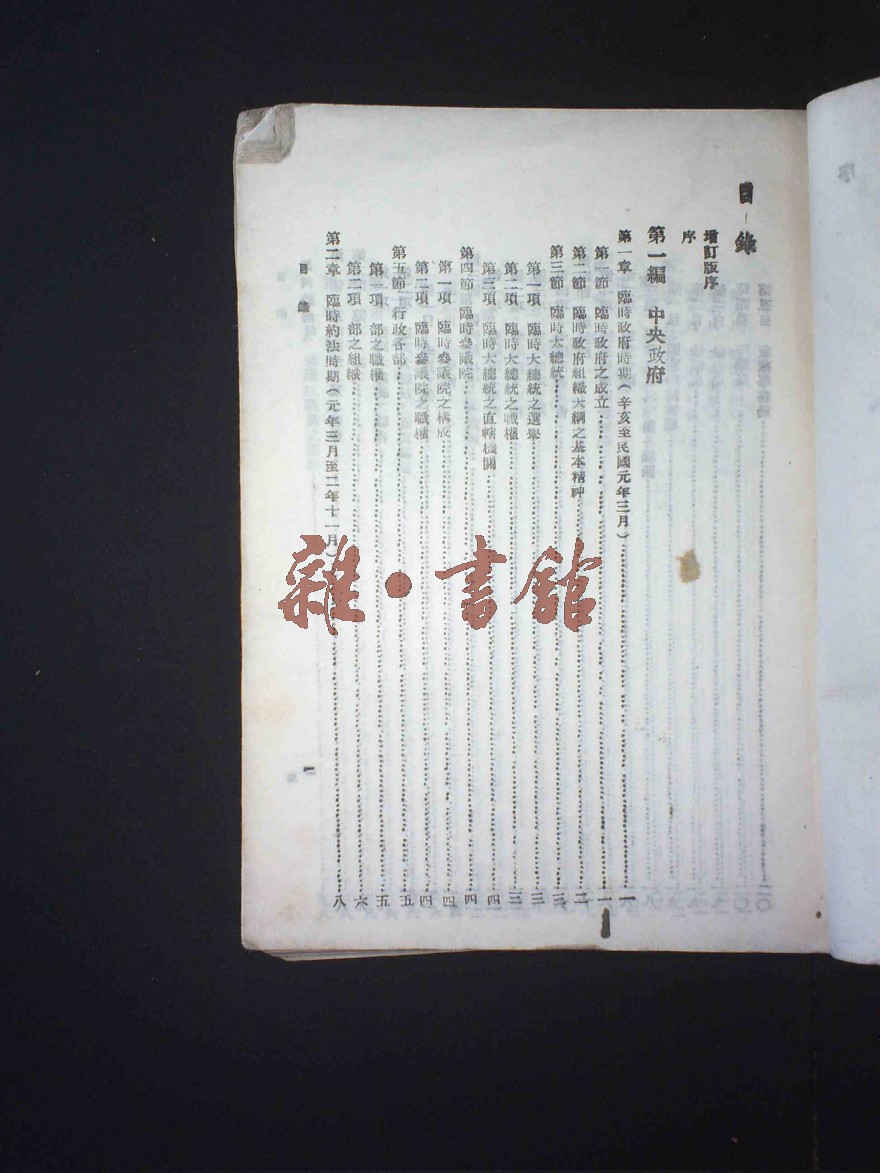 目錄
增訂版序
序
第一編 中央政府
第一章 臨時政府時期(辛亥至民國元年三月)……一
第一節 臨時政府之成立……一
第二節 臨時政府組織大綱之基本精神……二
第三節 臨時大總統……三
第一項 臨時大總統之選舉……三
第二項 臨時大總統之職權……三
第三項 臨時大總統之直轄機關……四
第四節 臨時參議院……四
第一項 臨時參議院之構成……四
第二項 臨時參議院之職權……四
第五節 行政各部……五
第一項 部之職權……五
第二項 部之組織……六
第二章 臨時約法時期(元年三月至二年十一月)……八
目錄
一
雜·書館